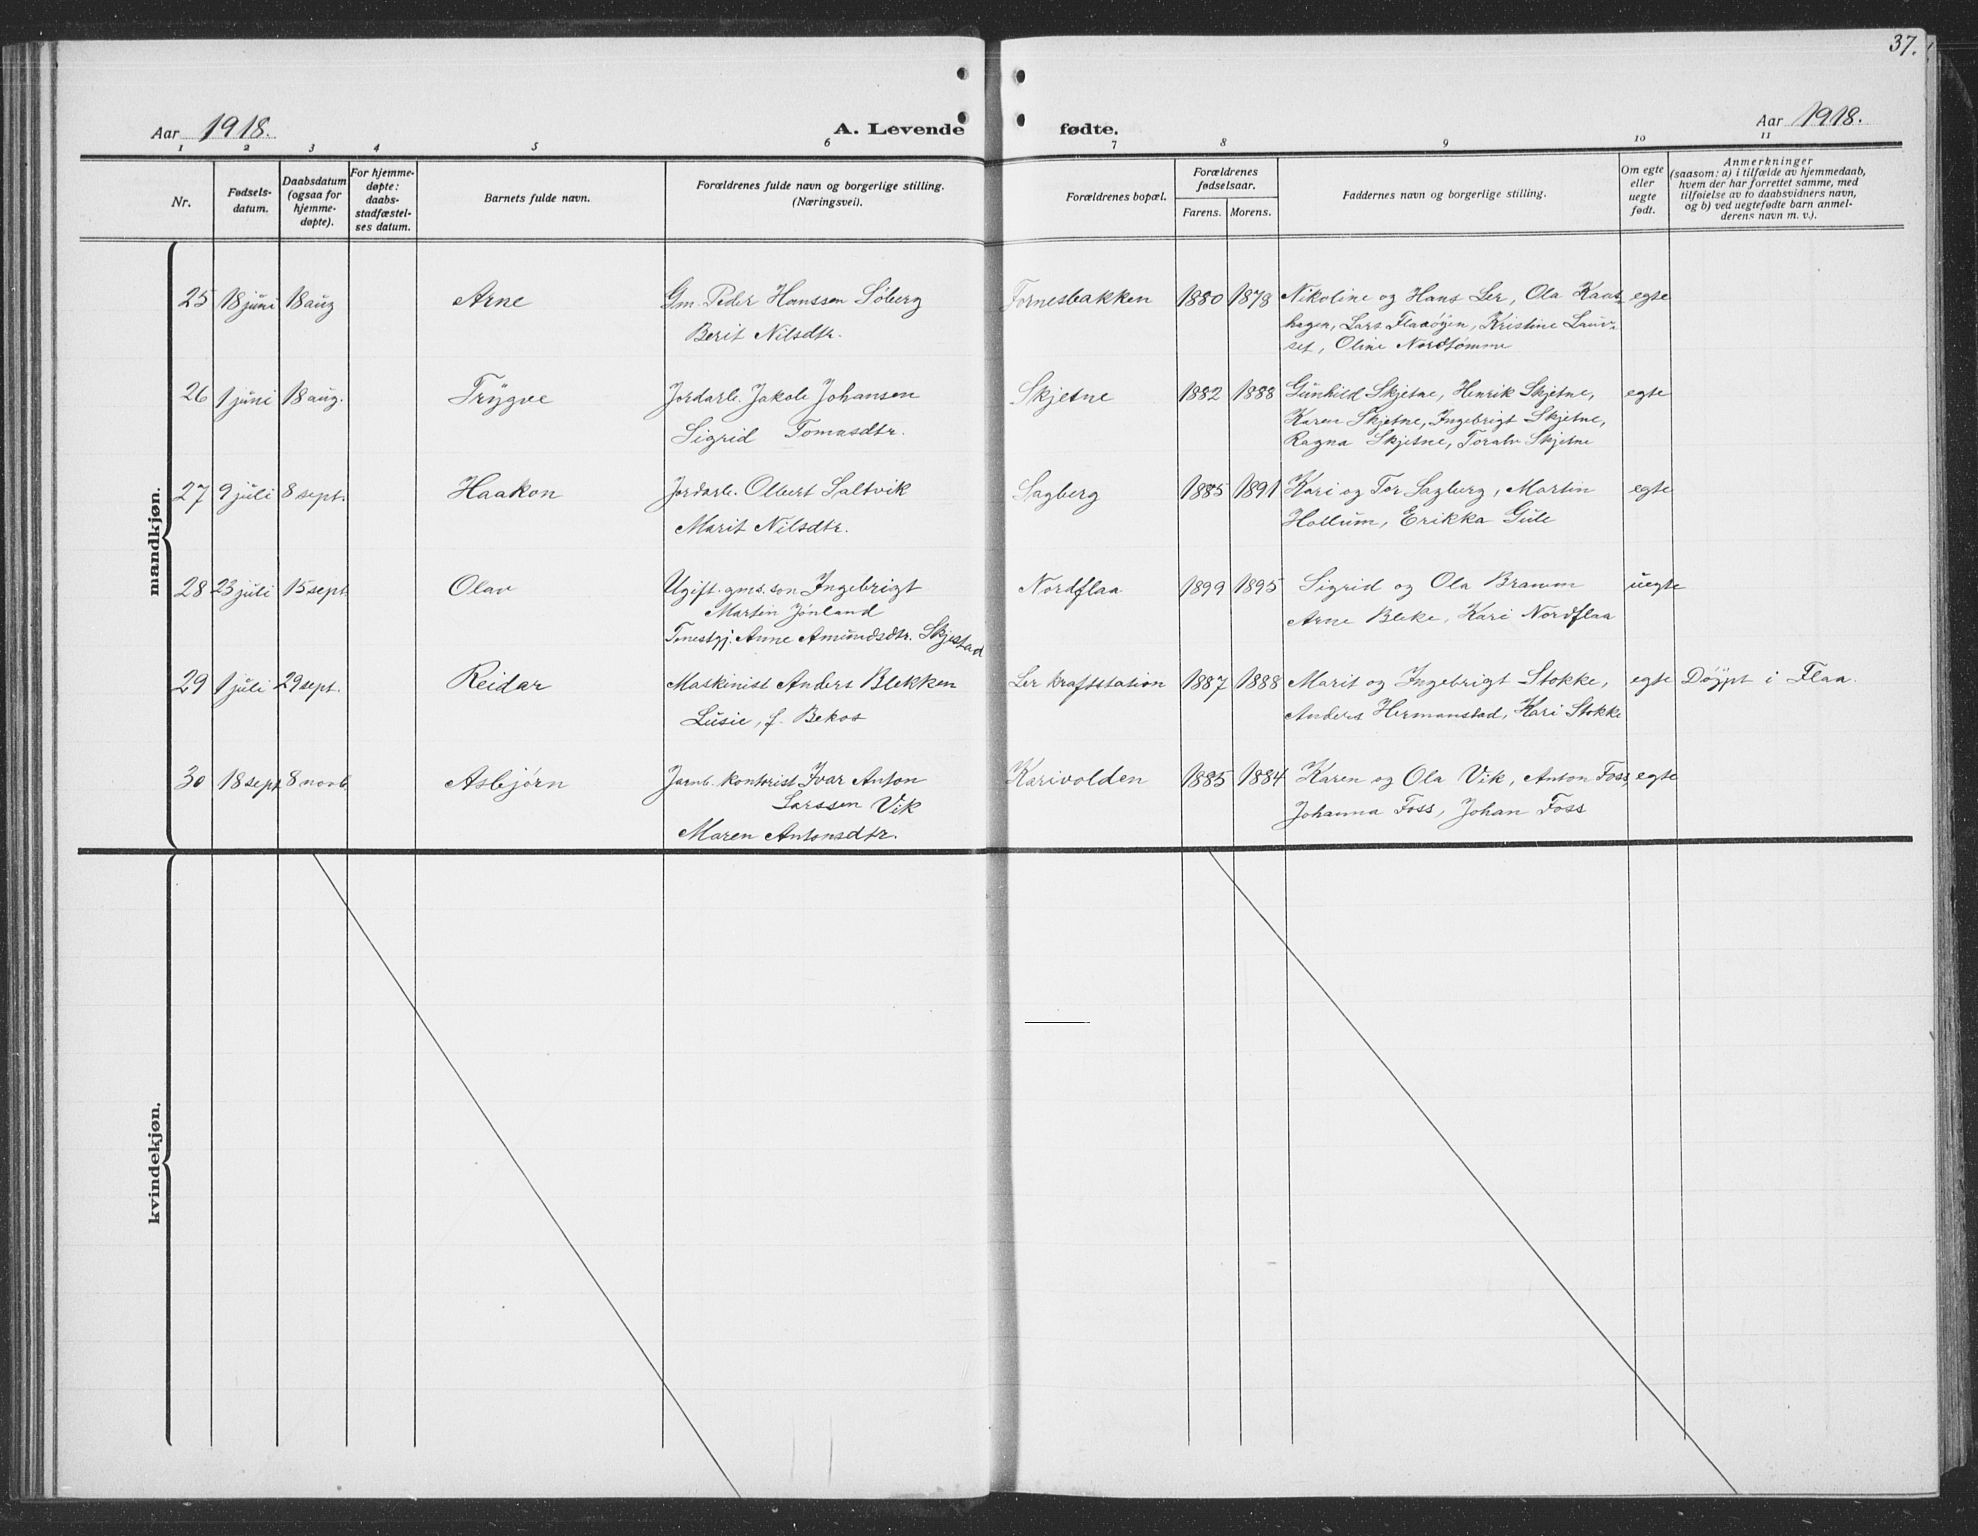 37.
Aar 1918. A. Levende fødte. Aar 1918.
1 2 3 4 5 6 7 8 9 10 11
Nr.
Fødsels-
datum.
Daabsdatum
(ogsaa for
hjemme-
døpte).
For hjemme-
døpte:
daabs-
stadfæstel-
ses datum.
Barnets fulde navn.
Forældrenes fulde navn og borgerlige stilling.
(Næringsvei).
Forældrenes bopæl.
Forældrenes
fødselsaar.
Farens. Morens.
Faddernes navn og borgerlige stilling.
Om egte
eller
uegte
født.
Anmerkninger
(saasom: a) i tilfælde av hjemmedaab,
hvem der har forrettet samme, med
tilføielse av to daabsvidners navn,
og b) ved uegtefødte barn anmel-
derens navn m. v.).
mandkjøn.
25 18 juni 18 aug Arne Gm. Peder Hanssen Söberg Fornesbakken 1880 1878 Nikoline og Hans Ler, Ola Kaas- egte
Berit Nilsdtr. hagen, Lars Flaaöyen, Kristine Lauv-
set, Oline Nordtömme
26 1 juni 18 aug. Trygve Jordarb. Jakob Johansen Skjetne 1882 1888 Gunhild Skjetne, Henrik Skjetne, egte
Sigrid Tomasdtr. Karen Skjetne, Ingebrigt Skjetne,
Ragna Skjetne, Toralv Skjetne
27 9 juli 8 sept. Haakon Jordarb. Olbert Saltvik Sagberg 1885 1891 Kari og Tor Sagberg, Martin egte
Marit Nilsdtr. Hollum, Erikka Gule
28 23 juli 15 sept Olav Ugift gms. son Ingebrigt Nordflaa 1899 1895 Sigrid og Ola Bramm uegte
Martin Jönland Arne Bleke, Kari Nordflaa
Tenestgj. Anne Amundsdtr. Skjestad
29 1 juli 29 sept. Reidar Maskinist Anders Blekken Ler kraftstation 1887 1888 Marit og Ingebrigt Stokke, egte Döypt i Flaa.
Lusie, f. Bekos Anders Hermanstad, Kari Stokke
30 18 sept 8 novb. Asbjörn Jarnb. kontorist Ivar Anton Karivolden 1885 1884 Karen og Ola Vik, Anton Foss, egte
Larssen Vik Johanna Foss, Johan Foss
Maren Antonsdtr.
kvindekjøn.